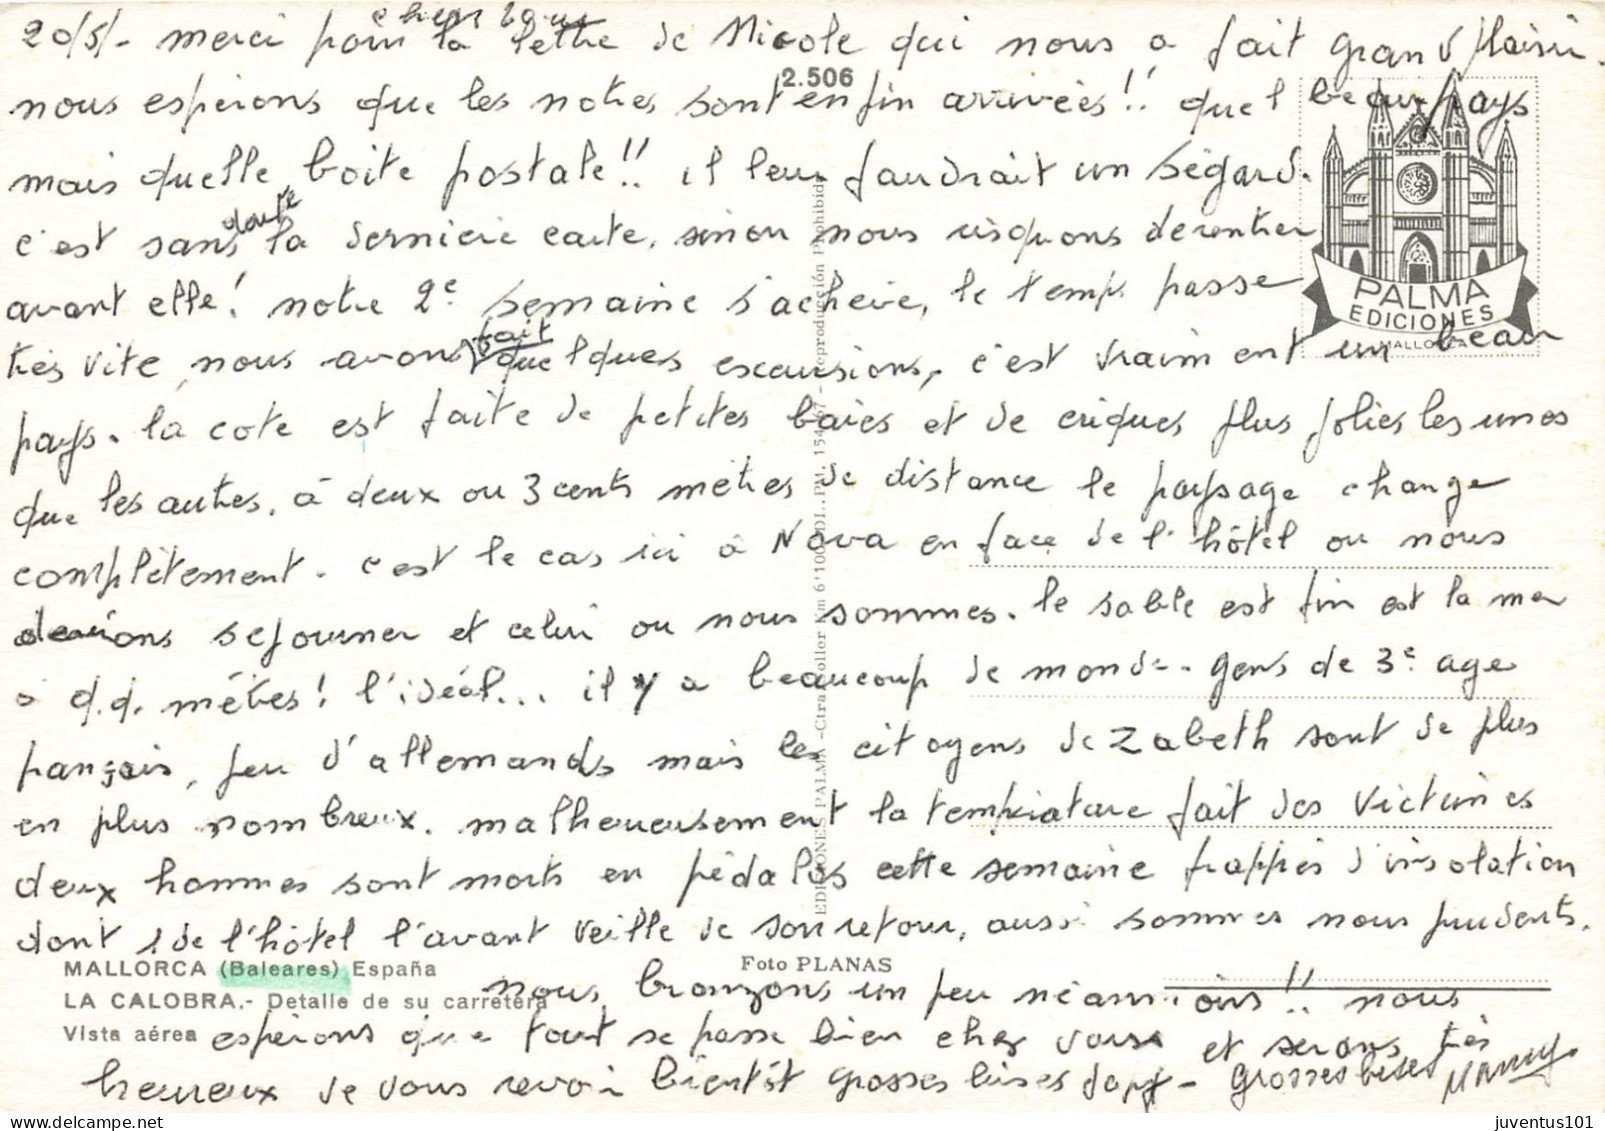 chers tous
20/5/- merci pour la lettre de Nicole qui nous a fait grand plaisir.
2.506
nous espérons que les notres sont enfin arrivées!! quel beau pays
mais quelle boite postale!! il leur faudrait un Ségard.
c'est sans doute la dernière carte, sinon nous risquons de rentrer
avant elle! notre 2e semaine s'achève, le temps passe
PALMA
EDICIONES
MALLORCA
très vite, nous avons fait quelques excursions, c'est vraiment un beau
pays. la cote est faite de petites baies et de criques plus jolies les unes
que les autres. à deux ou 3 cents mètres de distance le paysage change
complètement. c'est le cas ici à Nova en face de l'hôtel ou nous
devions sejourner et celui ou nous sommes. le sable est fin est la mer
à q.q. mètres! l'idéal... il y a beaucoup de monde. gens de 3e age
français, peu d'allemands mais les citoyens de Zabeth sont de plus
en plus nombreux. malheureusement la température fait des victimes
deux hommes sont morts en pédalos cette semaine frappés d'insolation
dont 1 de l'hôtel l'avant veille de son retour, aussi sommes nous prudents.
EDICIONES PALMA - Ctra. Soller Km 6'100
Reproducción Prohibida
MALLORCA (Baleares) España
Foto PLANAS
LA CALOBRA.- Detalle de su carretera
Vista aérea
nous bronzons un peu néanmoins!! nous
espérons que tout se passe bien chez vous et serons très
heureux de vous revoir bientôt grosses bises - Grosses bises Mamy
juventus101